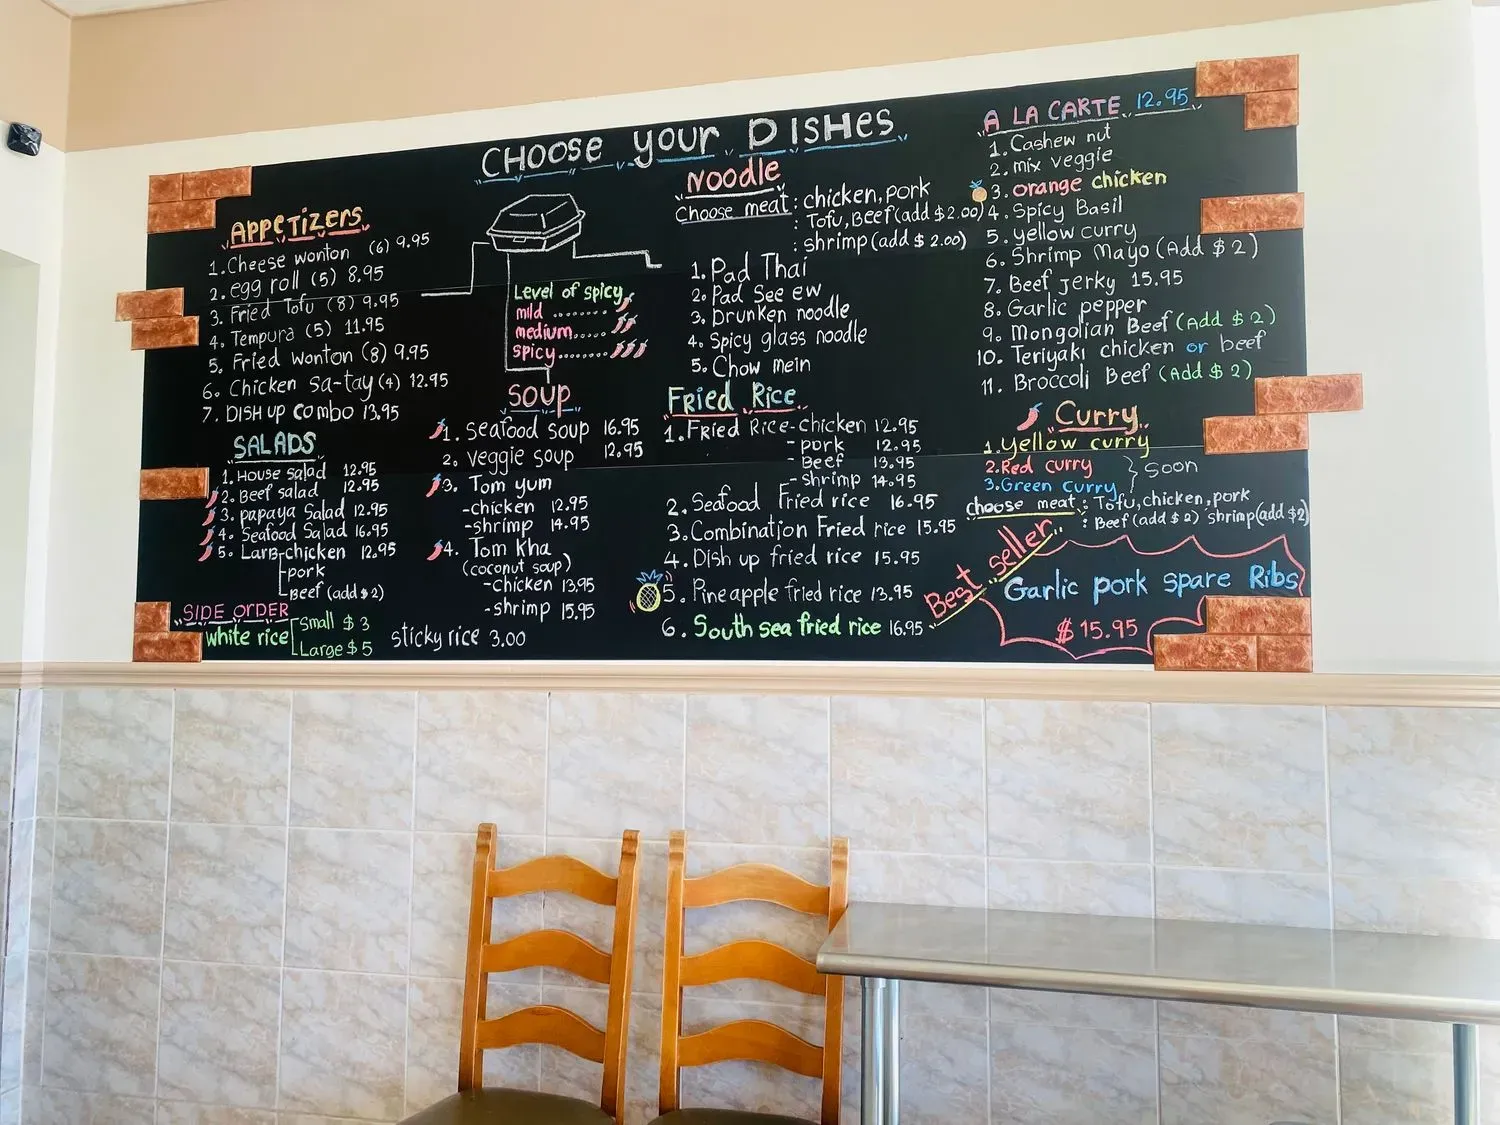 Choose Your Dishes
Appetizers
1. Cheese wonton (6) 9.95
2. egg roll (5) 8.95
3. Fried Tofu (8) 9.95
4. Tempura (5) 11.95
5. Fried wonton (8) 9.95
6. Chicken sa-tay (4) 12.95
7. DISH up combo 13.95
SALADS
1. House salad 12.95
2. Beef salad 12.95
3. papaya Salad 12.95
4. Seafood Salad 16.95
5. Larb-chicken 12.95
-pork
-Beef (add $2)
SIDE ORDER
white rice Small $3
Large $5
sticky rice 3.00
Level of spicy
mild ........
medium.....
spicy........
Soup
1. Seafood soup 16.95
2. veggie soup 12.95
3. Tom yum
-chicken 12.95
-shrimp 14.95
4. Tom Kha
(coconut soup)
-chicken 13.95
-shrimp 15.95
Noodle
Choose meat: chicken, pork
: Tofu, Beef (add $2.00)
: shrimp (add $2.00)
1. Pad Thai
2. Pad See ew
3. Drunken noodle
4. Spicy glass noodle
5. Chow mein
Fried Rice
1. Fried Rice-chicken 12.95
- pork 12.95
- Beef 13.95
- shrimp 14.95
2. Seafood Fried rice 16.95
3. Combination Fried rice 15.95
4. Dish up fried rice 15.95
5. Pineapple fried rice 13.95
6. South sea fried rice 16.95
A LA CARTE 12.95
1. Cashew nut
2. mix veggie
3. orange chicken
4. Spicy Basil
5. yellow curry
6. Shrimp Mayo (Add $2)
7. Beef jerky 15.95
8. Garlic pepper
9. Mongolian Beef (Add $2)
10. Teriyaki chicken or beef
11. Broccoli Beef (Add $2)
Curry
1. Yellow curry
2. Red curry
3. Green curry
Soon
choose meat: Tofu, chicken, pork
: Beef (add $2) shrimp (add $2)
Best seller
Garlic pork spare Ribs
$15.95